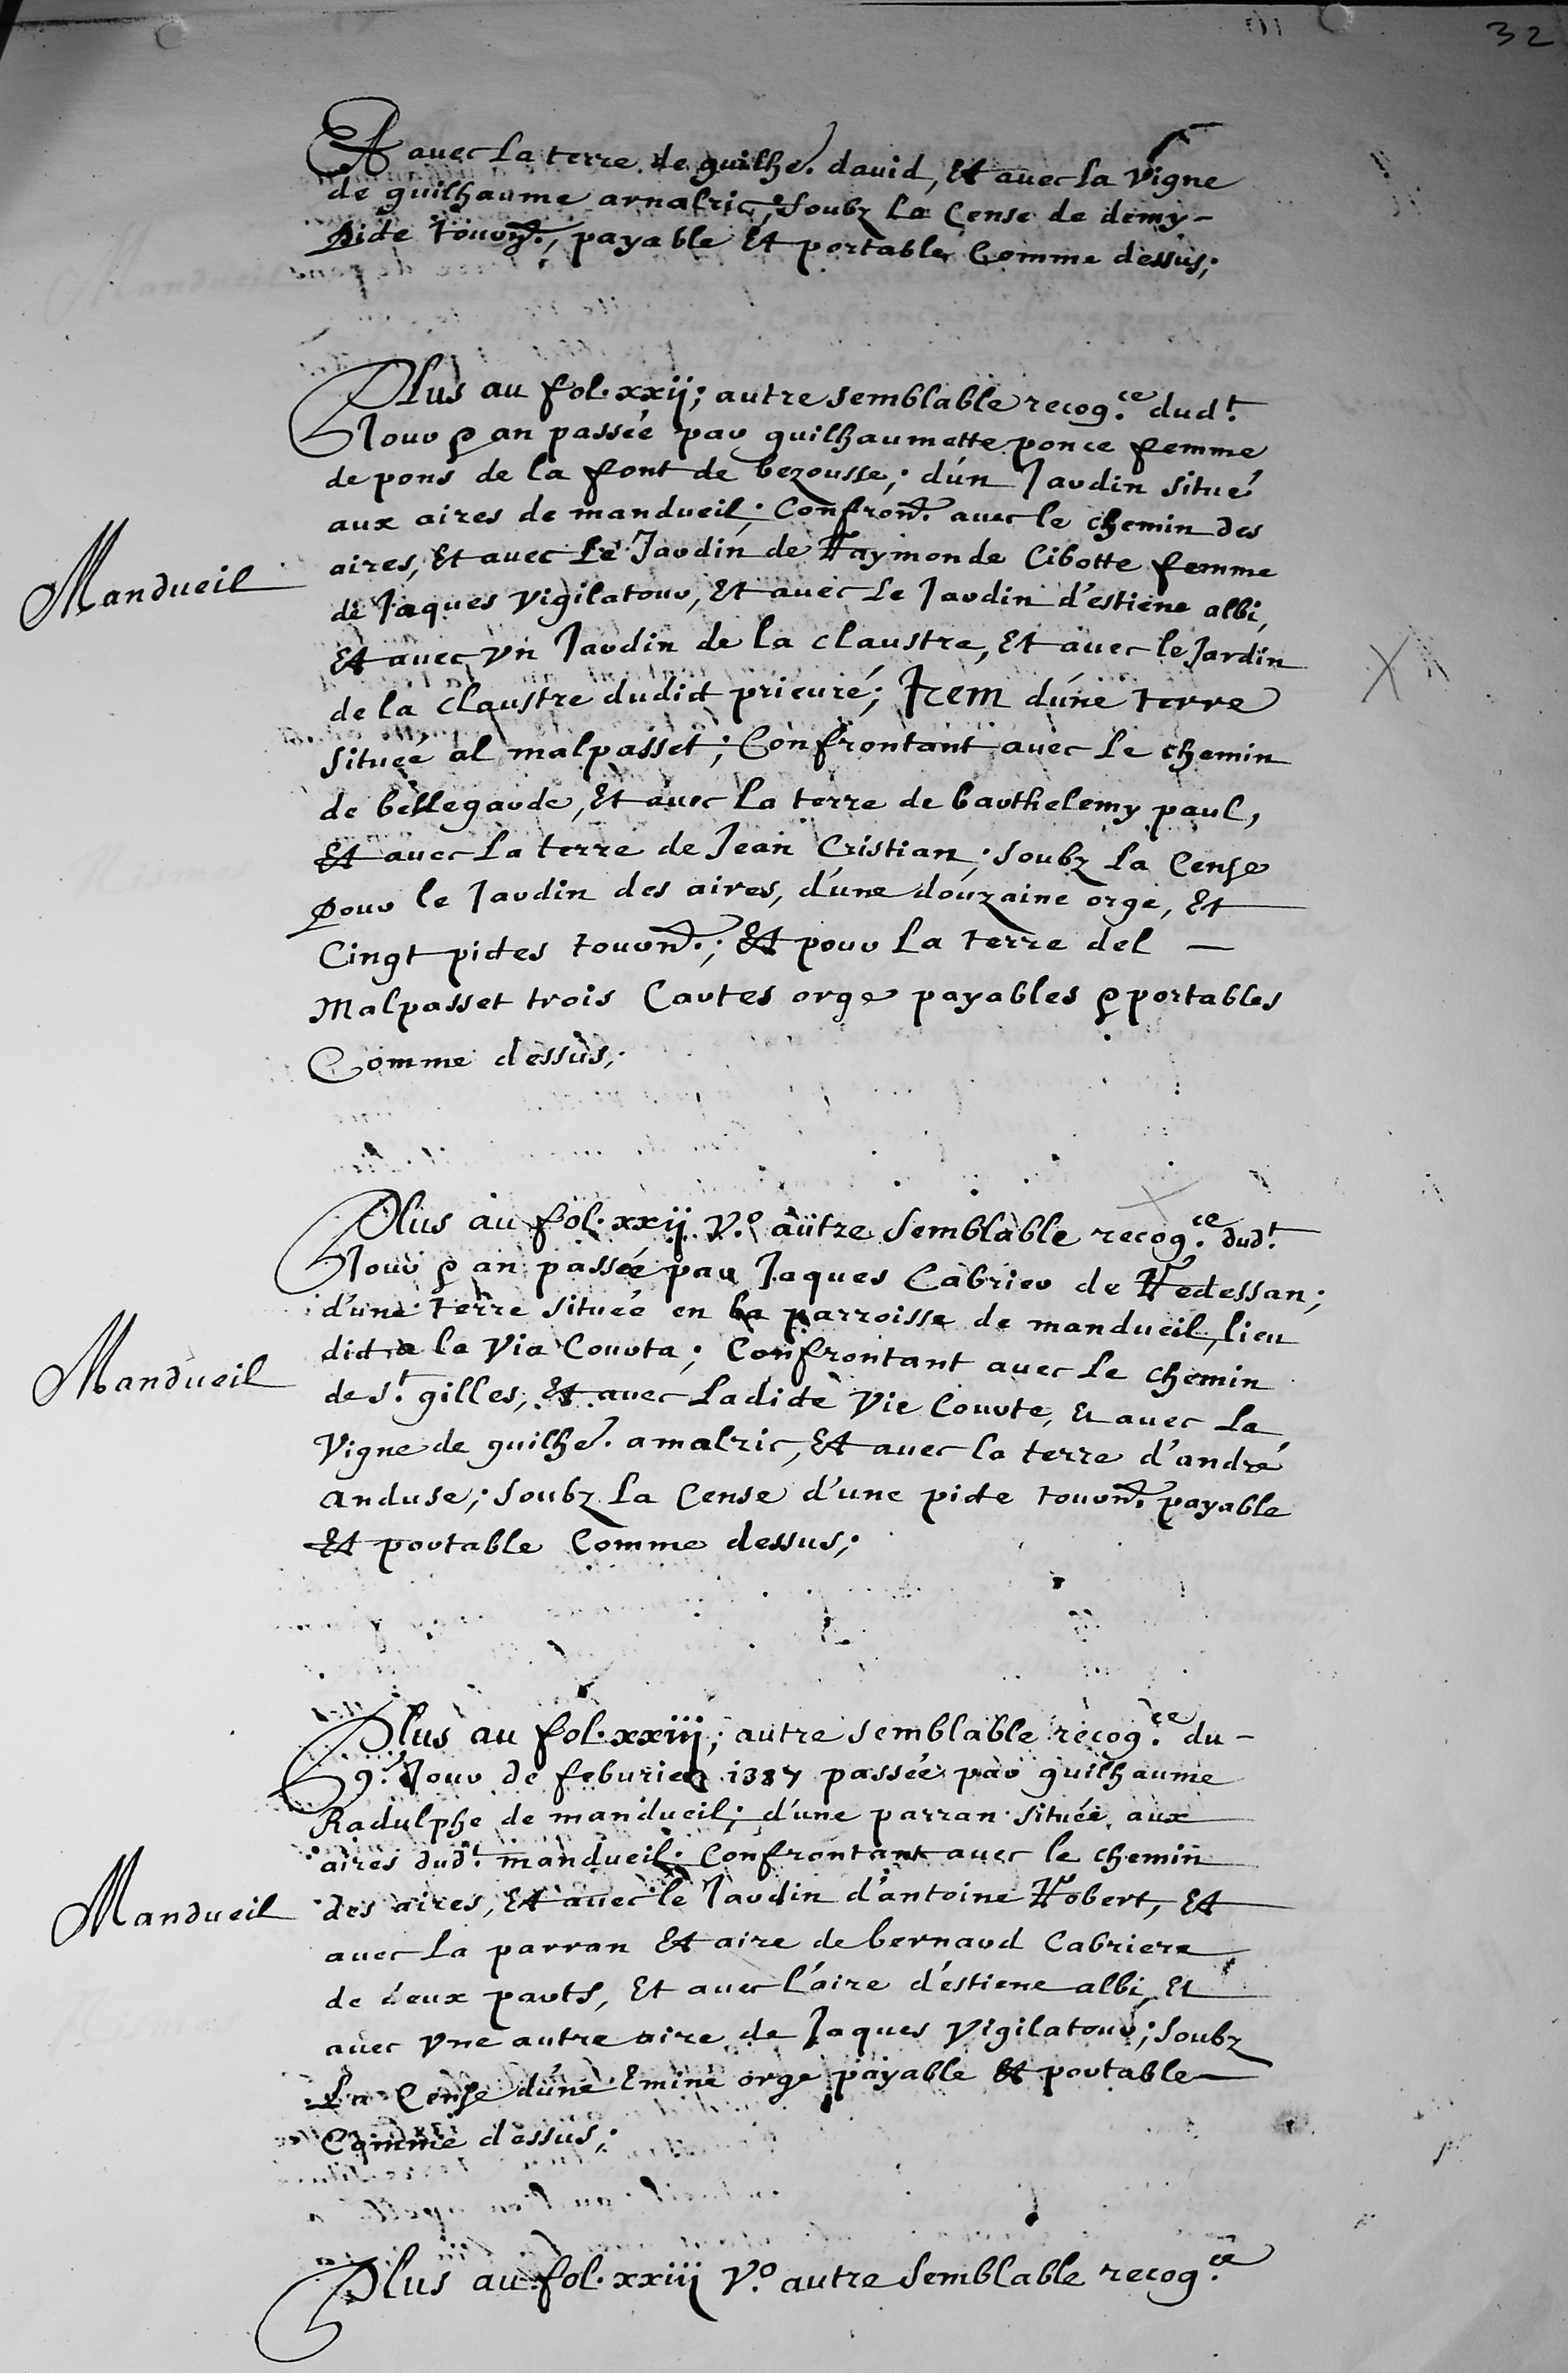 32
Et avec la terre de guilhe. david, Et avec la Vigne
de guilhaume arnalric; soubz La Cense de demy-
pite tourn., payable Et portable Comme dessus;
Plus au fol. xxij; autre semblable recog.ce dud.t
Jour & an passée par guilhaumette ponce femme
de pons de la font de bezousse; d'un Jardin situé
aux aires de mandueil; Confron. avec le chemin des
aires, Et avec Le Jardin de Raymonde Cibotte femme
Mandueil
de Jaques Vigilatour, Et avec Le Jardin d'estiene albi,
Et avec Vn Jardin de la claustre, Et avec le Jardin
de la Claustre dudit prieuré; Item d'une terre
située al malpasset; Confrontant avec Le chemin
de bellegarde, Et avec La terre de barthelemy paul,
Et avec La terre de Jean Cristian; soubz La Cense
Pour le Jardin des aires, d'une douzaine orge, Et
Cingt pites tourn.; Et pour La terre del —
Malpasset trois Cartes orge payables & portables
Comme dessus;
Plus au fol. xxij V.o autre semblable recog.ce dud.t
Jour & an passée par Jaques Cabrier de Redessan;
d'une terre située en la parroisse de mandueil, lieu
dit a la Via Courta; Confrontant avec Le chemin
Mandueil
de S.t gilles, Et avec Ladite Vie Courte, Et avec La
Vigne de guilhe. amalric, Et avec la terre d'andré
anduse; soubz La Cense d'une pite tourn. payable
Et portable Comme dessus;
Plus au fol. xxiij; autre semblable recog.ce du -
9.e Jour de feburier 1387 passée par guilhaume
Radulphe de mandueil; d'une parran située aux
aires dud.t mandueil; Confrontant avec le chemin
Mandueil
des aires, Et avec le Jardin d'antoine Robert, Et
avec La parran Et aire de bernard Cabriere
de deux parts, Et avec l'aire d'estiene albi, Et
avec Vne autre aire de Jaques Vigilatour; soubz
La Cense d'une Emine orge payable Et portable —
Comme dessus;
Plus au fol. xxiij V.o autre semblable recog.ce